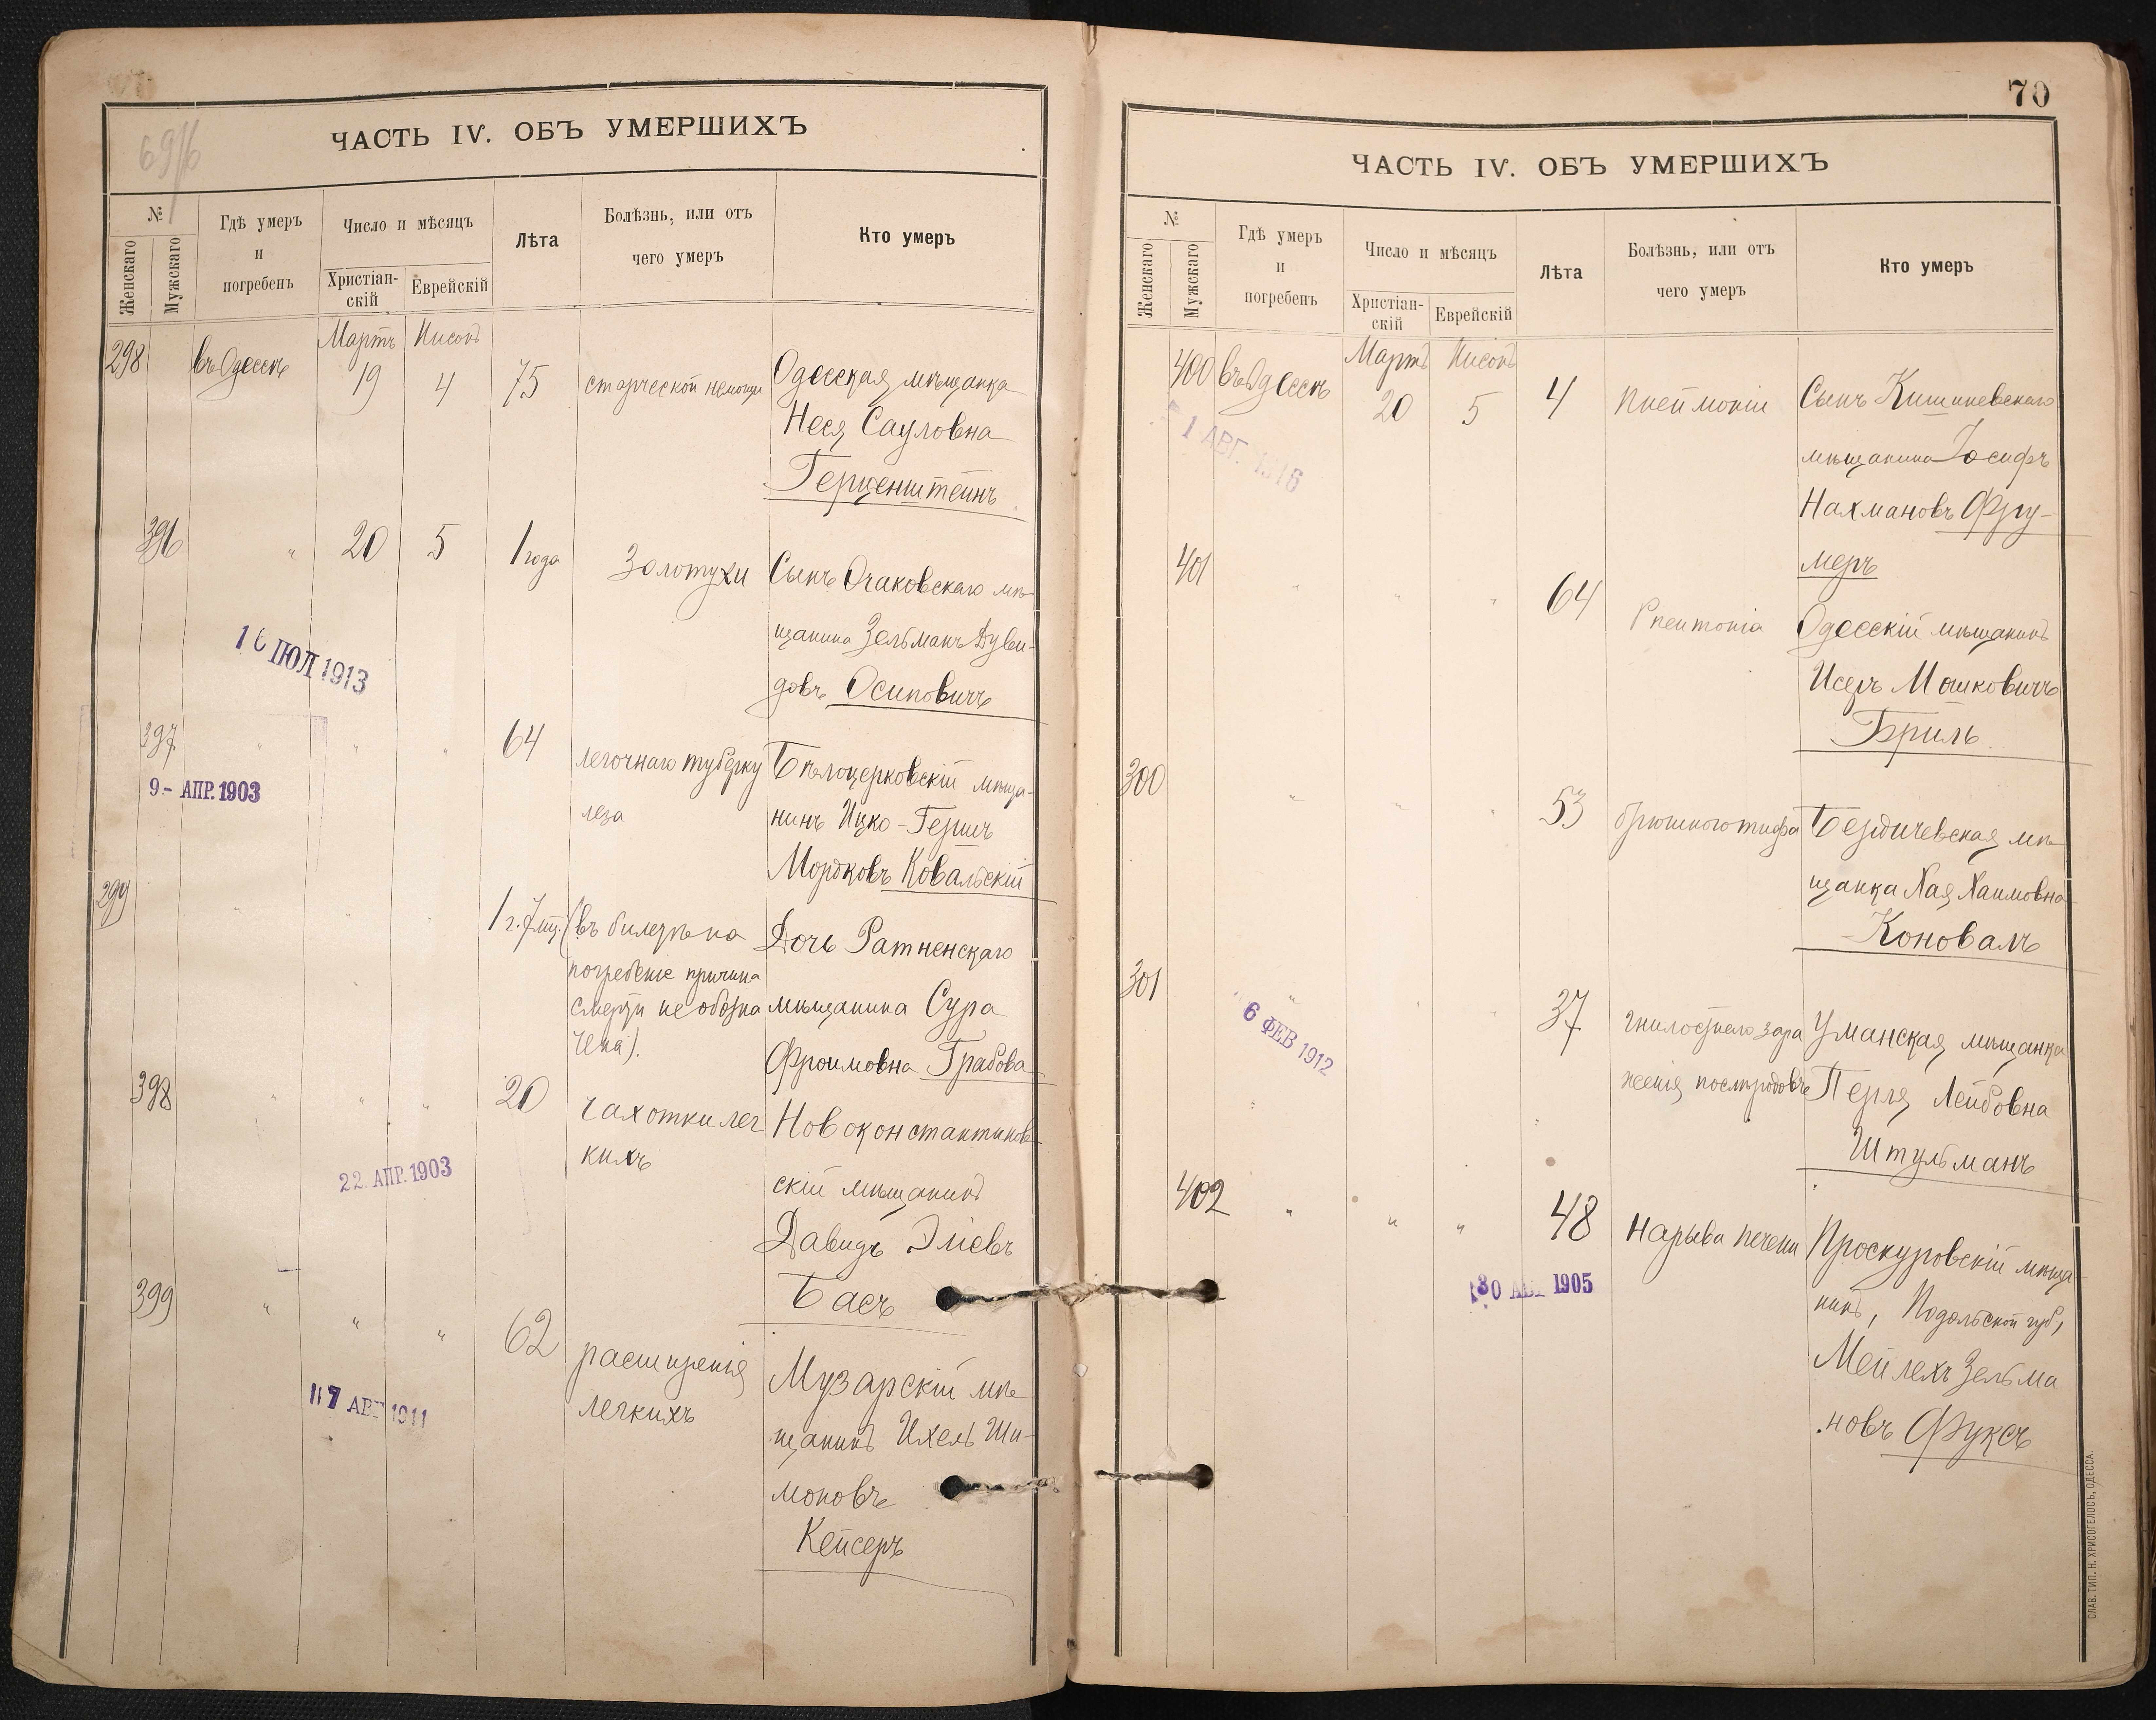 69/16
ЧАСТЬ IV. ОБЪ УМЕРШИХЪ
№
Женскаго
Мужскаго
Гдѣ умеръ
и
погребенъ
Число и мѣсяцъ
Христіан-
скій
Еврейскій
Лѣта
Болѣзнь, или отъ
чего умеръ
Кто умеръ
Мартъ Нисонъ
298 въ Одессѣ 19 4 75 старческой немощи Одесская мѣщанка
Неся Сауловна
Герценштейнъ
396 " 20 5 1 года Золотухи Сынъ Очаковскаго мѣ-
щанина Зельманъ Дуви-
довъ Осиповичъ
10 ІЮЛ 1913
397 " " " 64 легочнаго туберку Бѣлоцерковскій мѣща-
леза нинъ Ицко-Гершъ
Мордковъ Ковальскій
9- АПР. 1903
299 " " " 1 г. 7 мц. (въ билетѣ на Дочь Ратненскаго
погребеніе причина
смерти не обозна мѣщанина Сура
чена).
Фроимовна Грабова
398 " " " 20 чахотки лег Новоконстантинов-
кихъ
скій мѣщанинъ
Давидъ Эліевъ
Басъ
22. АПР. 1903
399 " " " 62 расширенія Музарскій мѣ-
легкихъ щанинъ Ихель Ши-
моновъ
Кейсеръ
17 АВГ 1911
70
ЧАСТЬ IV. ОБЪ УМЕРШИХЪ
№
Женскаго
Мужскаго
Гдѣ умеръ
и
погребенъ
Число и мѣсяцъ
Христіан-
скій
Еврейскій
Лѣта
Болѣзнь, или отъ
чего умеръ
Кто умеръ
Мартъ Нисонъ
400 въ Одессѣ 20 5 4 Пнеймоніи Сынъ Кишиневскаго
мѣщанина Іосифъ
Нахмановъ Фру-
меръ
1 АВГ. 1916
401 " " " 64 Pneumonia Одесскій мѣщанинъ
Исеръ Мошковичъ
Бриль
300 " " " 53 брюшного тифа Бердичевская мѣ-
щанка Хая Хаимовна
Коновалъ
301 " " " 37 гнилостнаго зара Уманская мѣщанка
женія послѣ родовъ Перля Лейбовна
Штульманъ
6 ФЕВ 1912
402 " " " 48 Нарыва печени Проскуровскій мѣща-
нинъ, Подольской губ,
Мейлехъ Зельма
новъ Фуксъ
30 АВГ 1905
СЛАВ. ТИП. Н. ХРИСОГЕЛОСЪ, ОДЕССА.